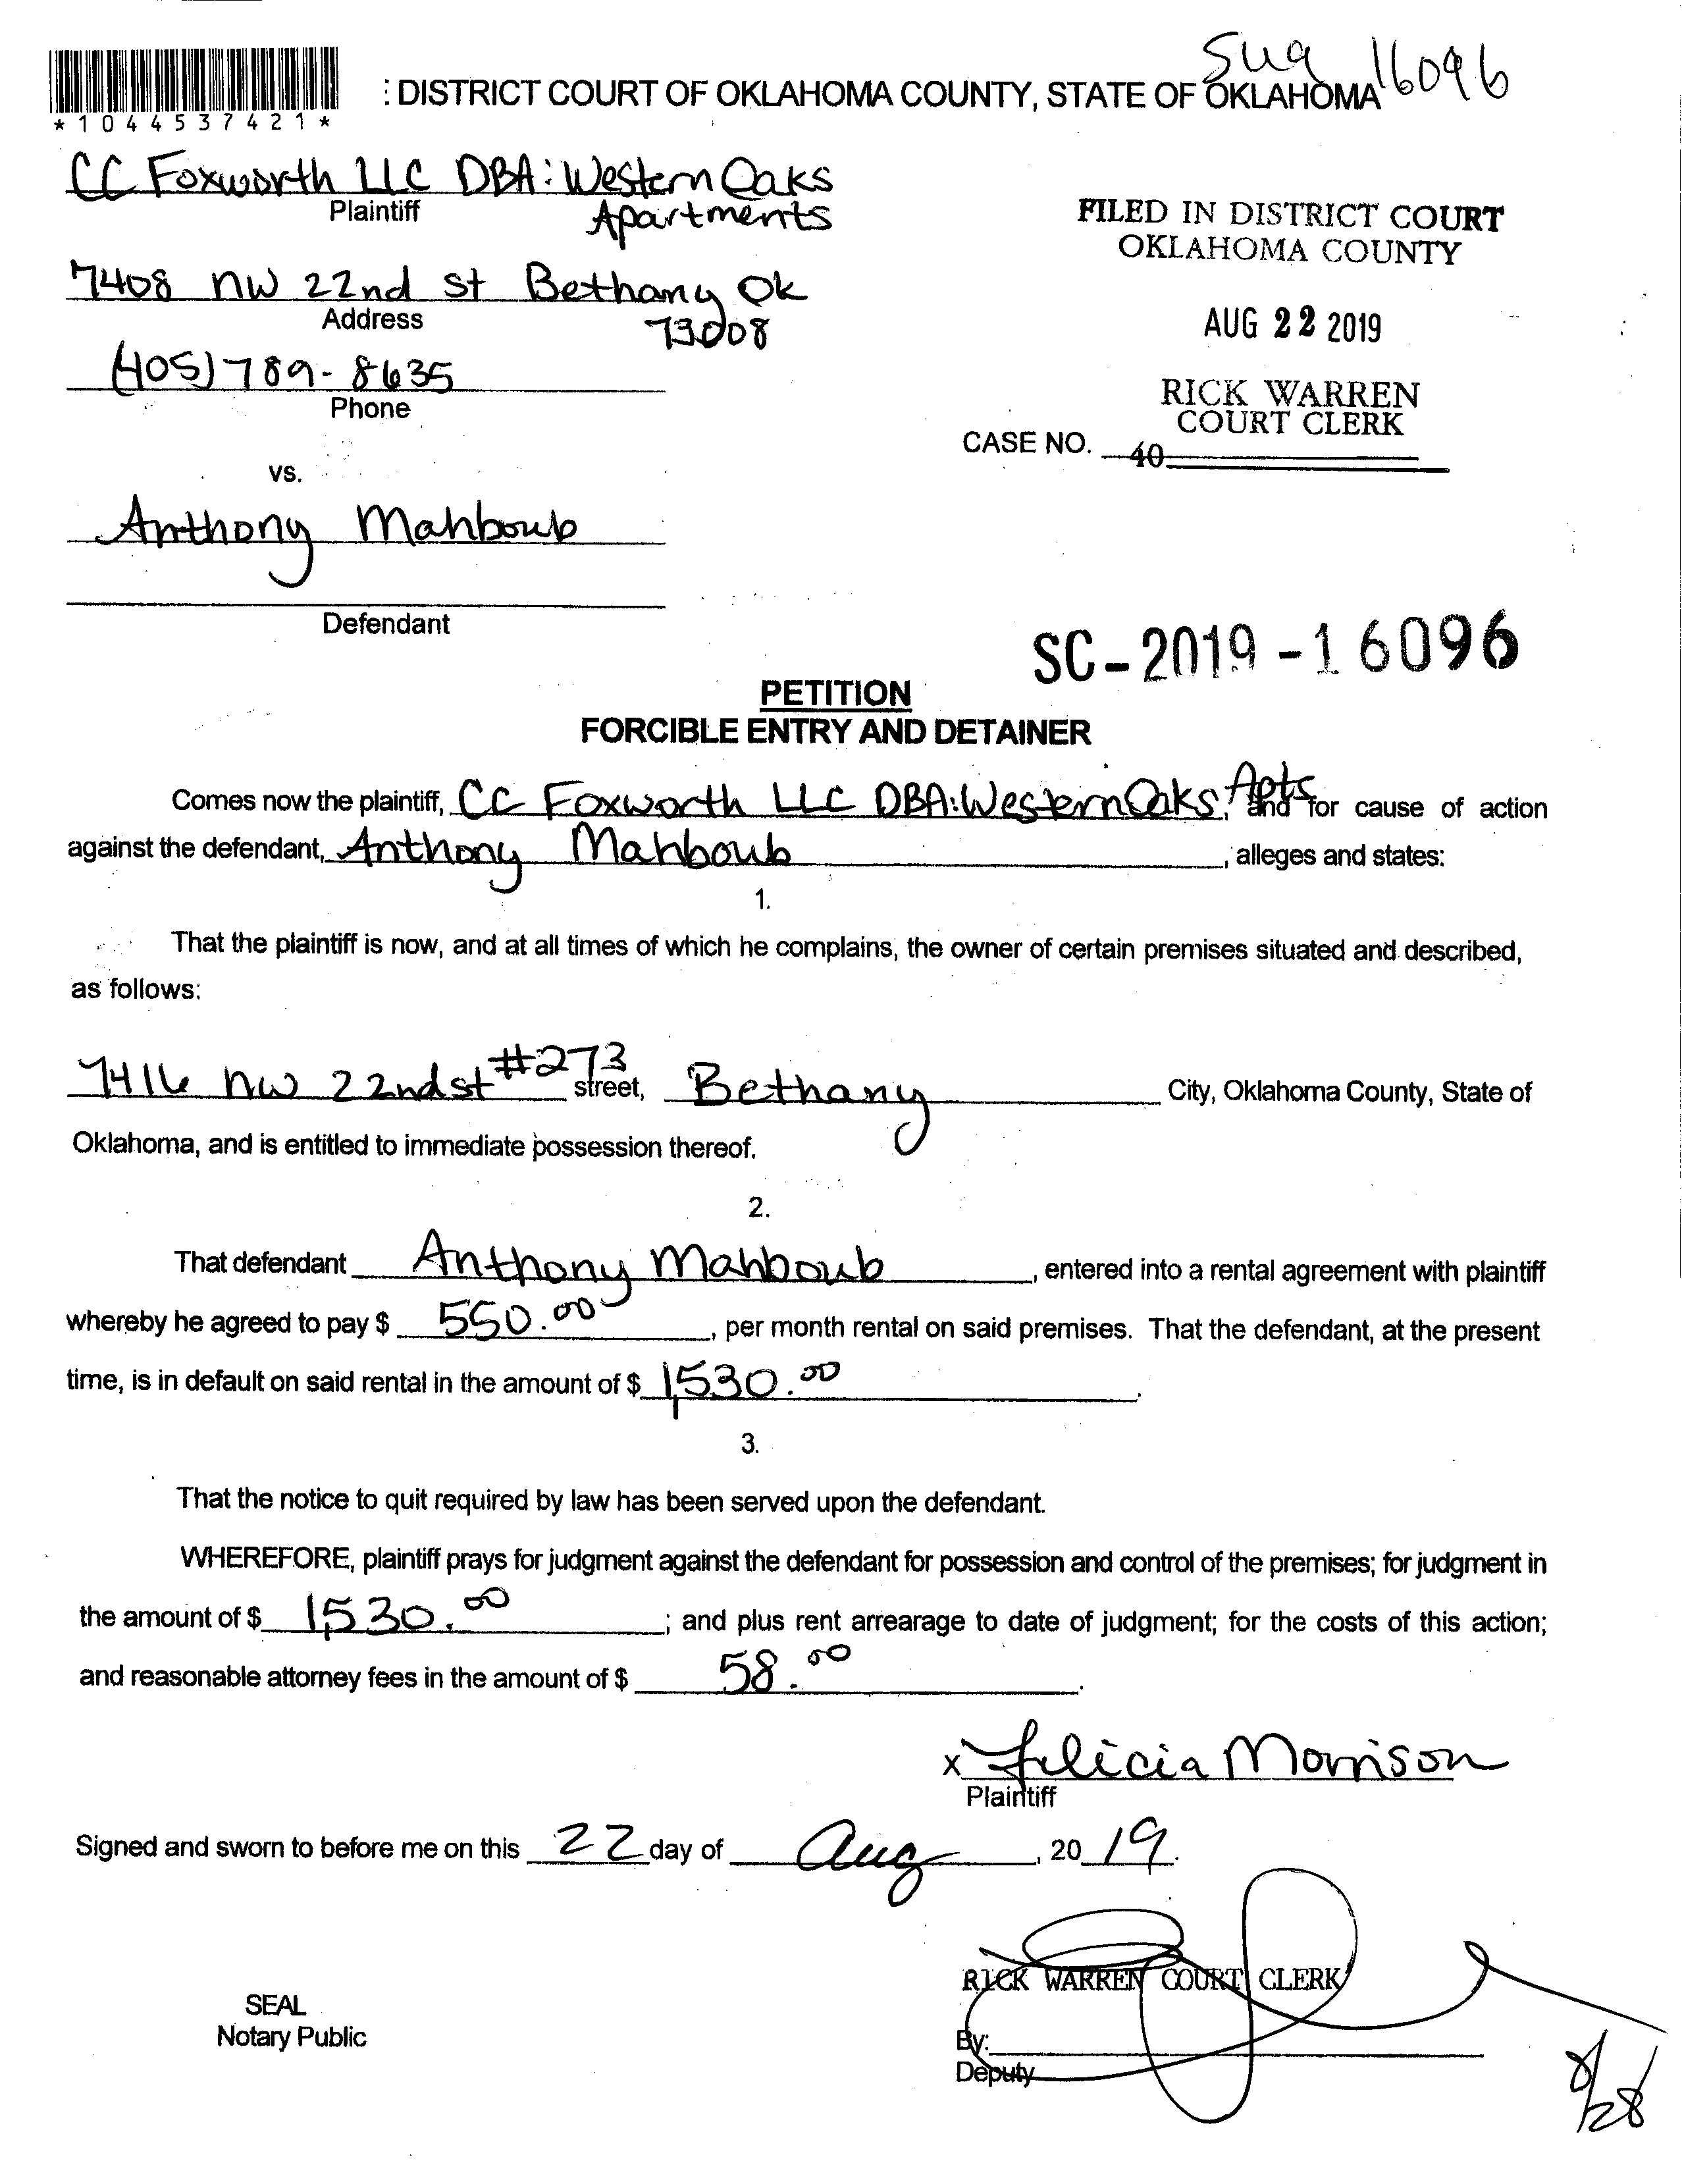 Sug 16096
: DISTRICT COURT OF OKLAHOMA COUNTY, STATE OF OKLAHOMA
*1044537421*
CC Foxworth LLC DBA: Western Oaks
Plaintiff
Apartments
FILED IN DISTRICT COURT
OKLAHOMA COUNTY
7408 NW 22nd st Bethany Ok
Address
73008
AUG 22 2019
(405) 789-8635
Phone
RICK WARREN
COURT CLERK
CASE NO. 40
vs.
Anthony Mahboub
Defendant
SC-2019-16096
PETITION
FORCIBLE ENTRY AND DETAINER
Comes now the plaintiff, CC Foxworth LLC DBA: Western Oaks Apts, and for cause of action
against the defendant, Anthony Mahboub, alleges and states:
1.
That the plaintiff is now, and at all times of which he complains, the owner of certain premises situated and described,
as follows:
7416 NW 22nd st #273 street, Bethany City, Oklahoma County, State of
Oklahoma, and is entitled to immediate possession thereof.
2.
That defendant Anthony Mahboub, entered into a rental agreement with plaintiff
whereby he agreed to pay $ 550.00, per month rental on said premises. That the defendant, at the present
time, is in default on said rental in the amount of $ 1,530.00.
3.
That the notice to quit required by law has been served upon the defendant.
WHEREFORE, plaintiff prays for judgment against the defendant for possession and control of the premises; for judgment in
the amount of $ 1,530.00; and plus rent arrearage to date of judgment; for the costs of this action;
and reasonable attorney fees in the amount of $ 58.00.
x Felicia Morrison
Plaintiff
Signed and sworn to before me on this 22 day of Aug, 2019.
RICK WARREN COURT CLERK
SEAL
Notary Public
By:
Deputy
8/28